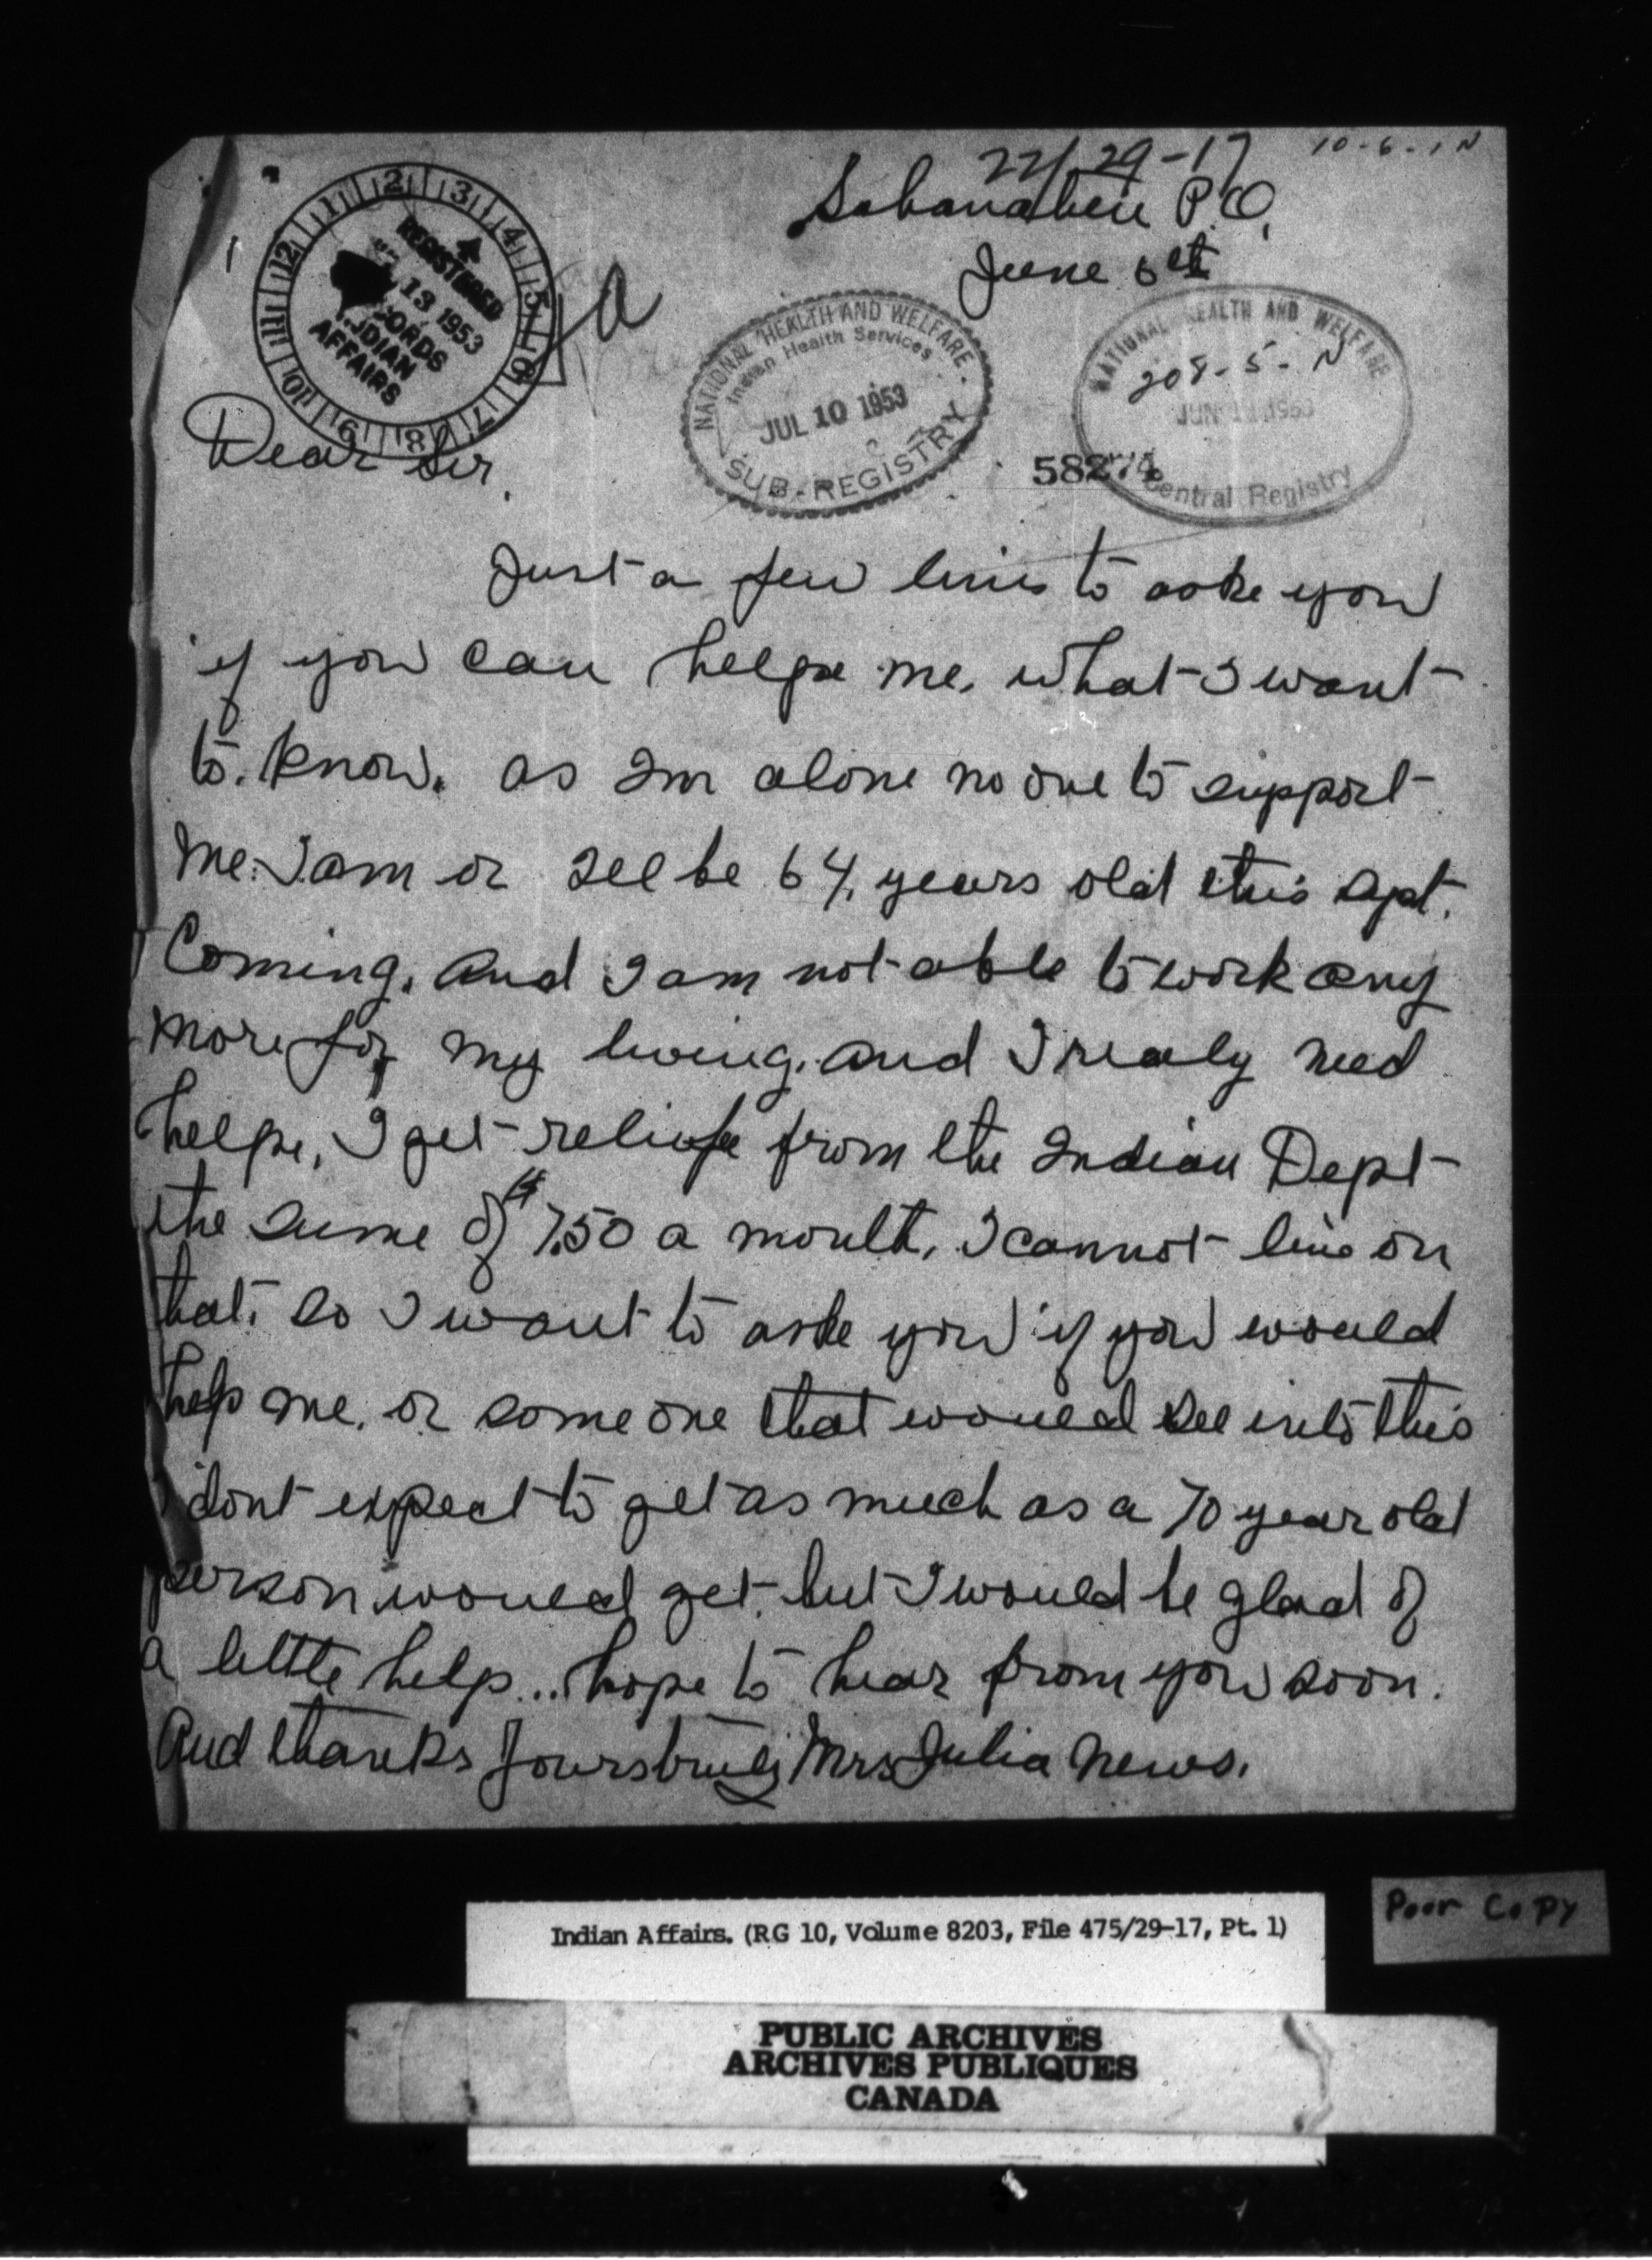 22/29-17
10-6-1 N
P.O.
June 6th
1 2 3 4 5 6 7 8 9 10 11 12
REGISTERED
13 1953
INDIAN
AFFAIRS
NATIONAL HEALTH AND WELFARE
Indian Health Services
JUL 10 1953
SUB-REGISTRY
NATIONAL HEALTH AND WELFARE
208-5-N
JUN 1953
Central Registry
Dear Sir,
Just a few lines to aske you
if you can helpe me, what I want
to. know. as Im alone no one to support
me. I am or Ill be 64, years old this Sept.
Coming. And I am not able to work any
more for my living. and I realy need
helpe, I get reliefe from the Indian Dept
the sume of $7.50 a month, I cannot live on
that. so I want to aske you if you would
help me. or some one that would see into this
I dont expect to get as much as a 70 year old
person would get. but I would be glad of
a little help... hope to hear from you soon.
And thanks Yours truly Mrs Julia News.
Poor Copy
Indian Affairs. (RG 10, Volume 8203, File 475/29-17, Pt. 1)
PUBLIC ARCHIVES
ARCHIVES PUBLIQUES
CANADA